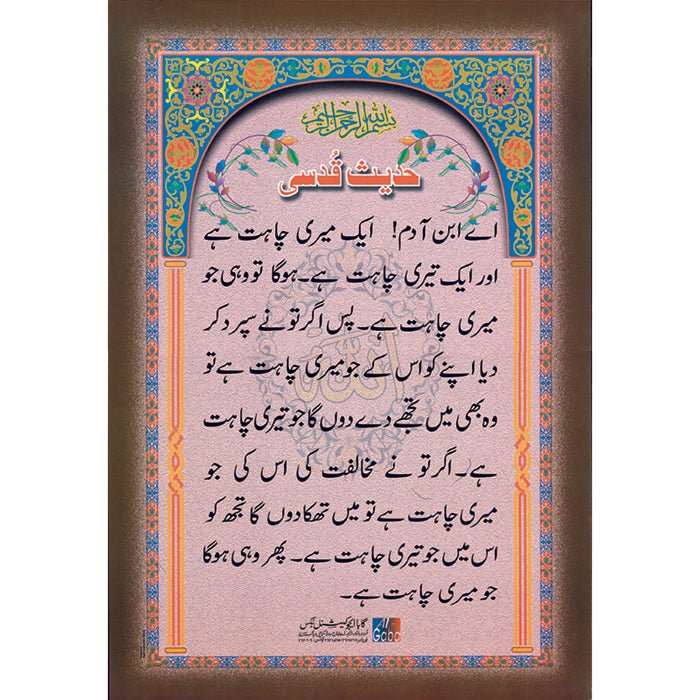 بسم الله الرحمن الرحيم
حدیث قُدسی
اے ابن آدم! ایک میری چاہت ہے
اور ایک تیری چاہت ہے۔ہوگا تو وہی جو
میری چاہت ہے۔ پس اگر تو نے سپرد کر
دیا اپنے کو اس کے جو میری چاہت ہے تو
وہ بھی میں تجھے دے دوں گا جو تیری چاہت
ہے۔ اگر تو نے مخالفت کی اس کی جو
میری چاہت ہے تو میں تھکا دوں گا تجھ کو
اس میں جو تیری چاہت ہے۔ پھر وہی ہوگا
جو میری چاہت ہے۔
الله
گابا ایجوکیشنل بکس
Gaba